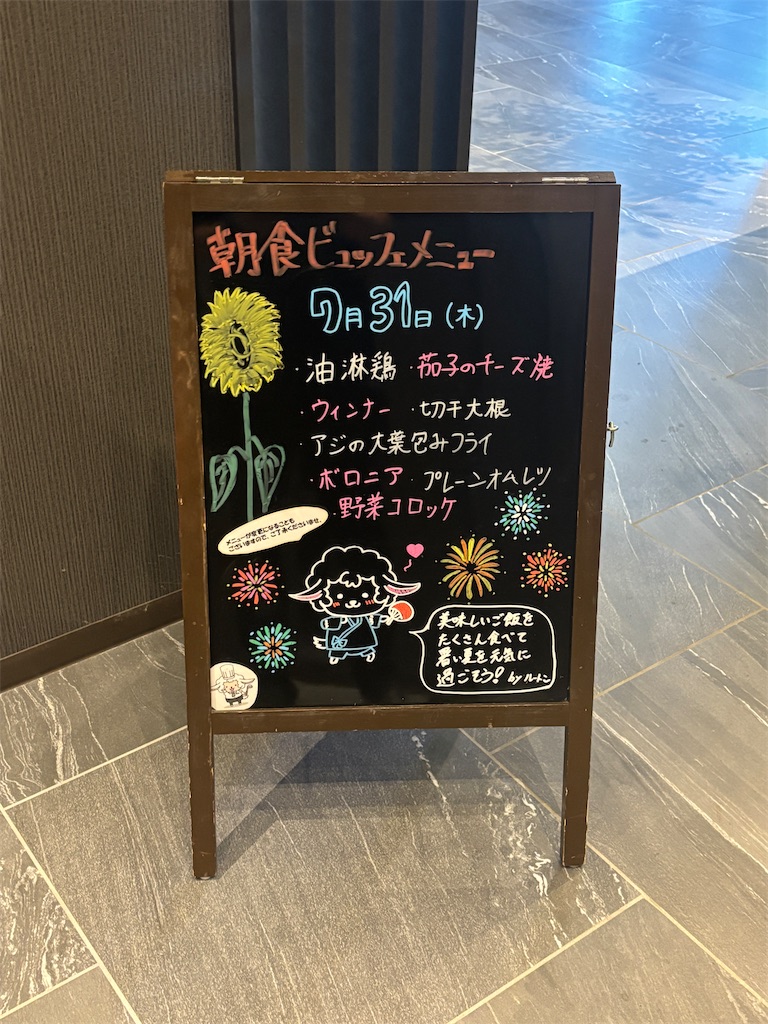 朝食ビュッフェメニュー
7月31日(木)
・油淋鶏 ・茄子のチーズ焼
・ウィンナー ・切干大根
・アジの大葉包みフライ
・ボロニア ・プレーンオムレツ
・野菜コロッケ
メニューが変更になることも
ございますので、ご了承くださいませ。
美味しいご飯を
たくさん食べて
暑い夏を元気に
過ごそう! byルートン